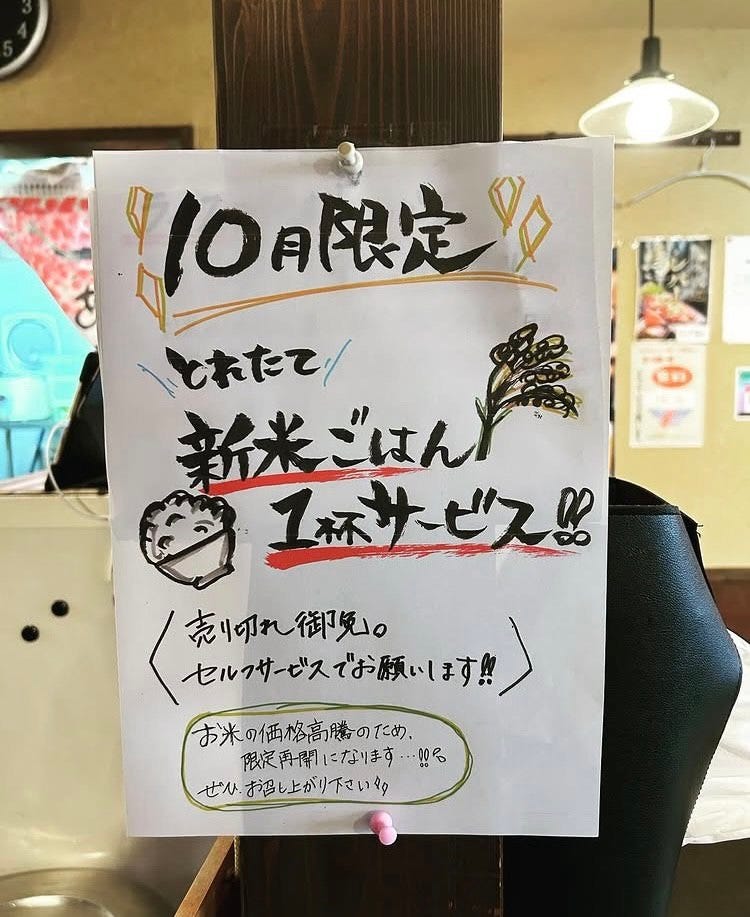 10月限定
とれたて
新米ごはん
1杯サービス!!
売り切れ御免。
セルフサービスでお願いします!!
お米の価格高騰のため、
限定再開になります…!!
ぜひ、お召し上がり下さい
3
4
5